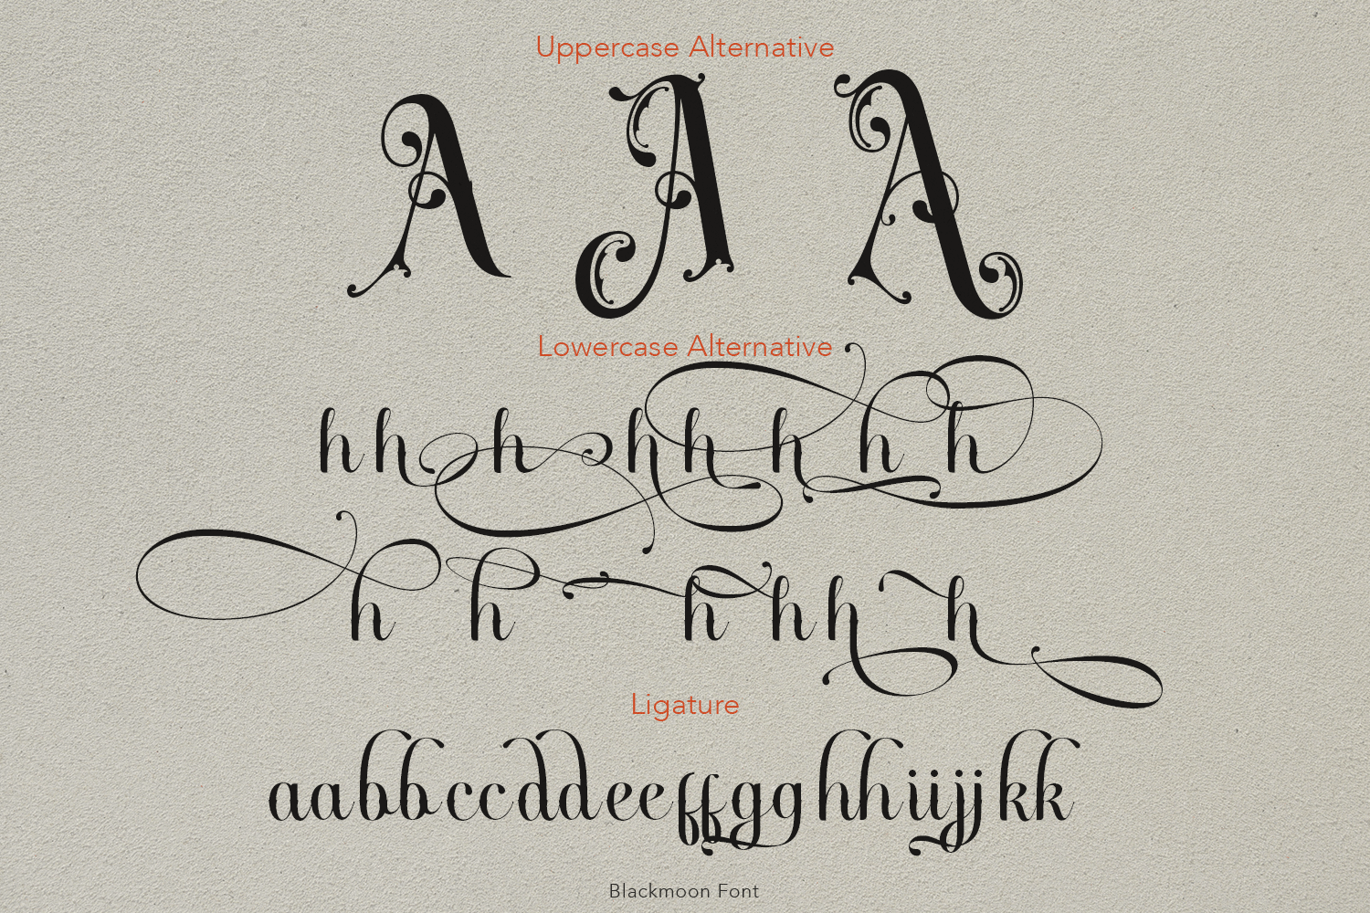 Uppercase Alternative
A A A
Lowercase Alternative
h h h h h h h h
h h h h h h
Ligature
aabbccddeeffgghhiijjkk
Blackmoon Font